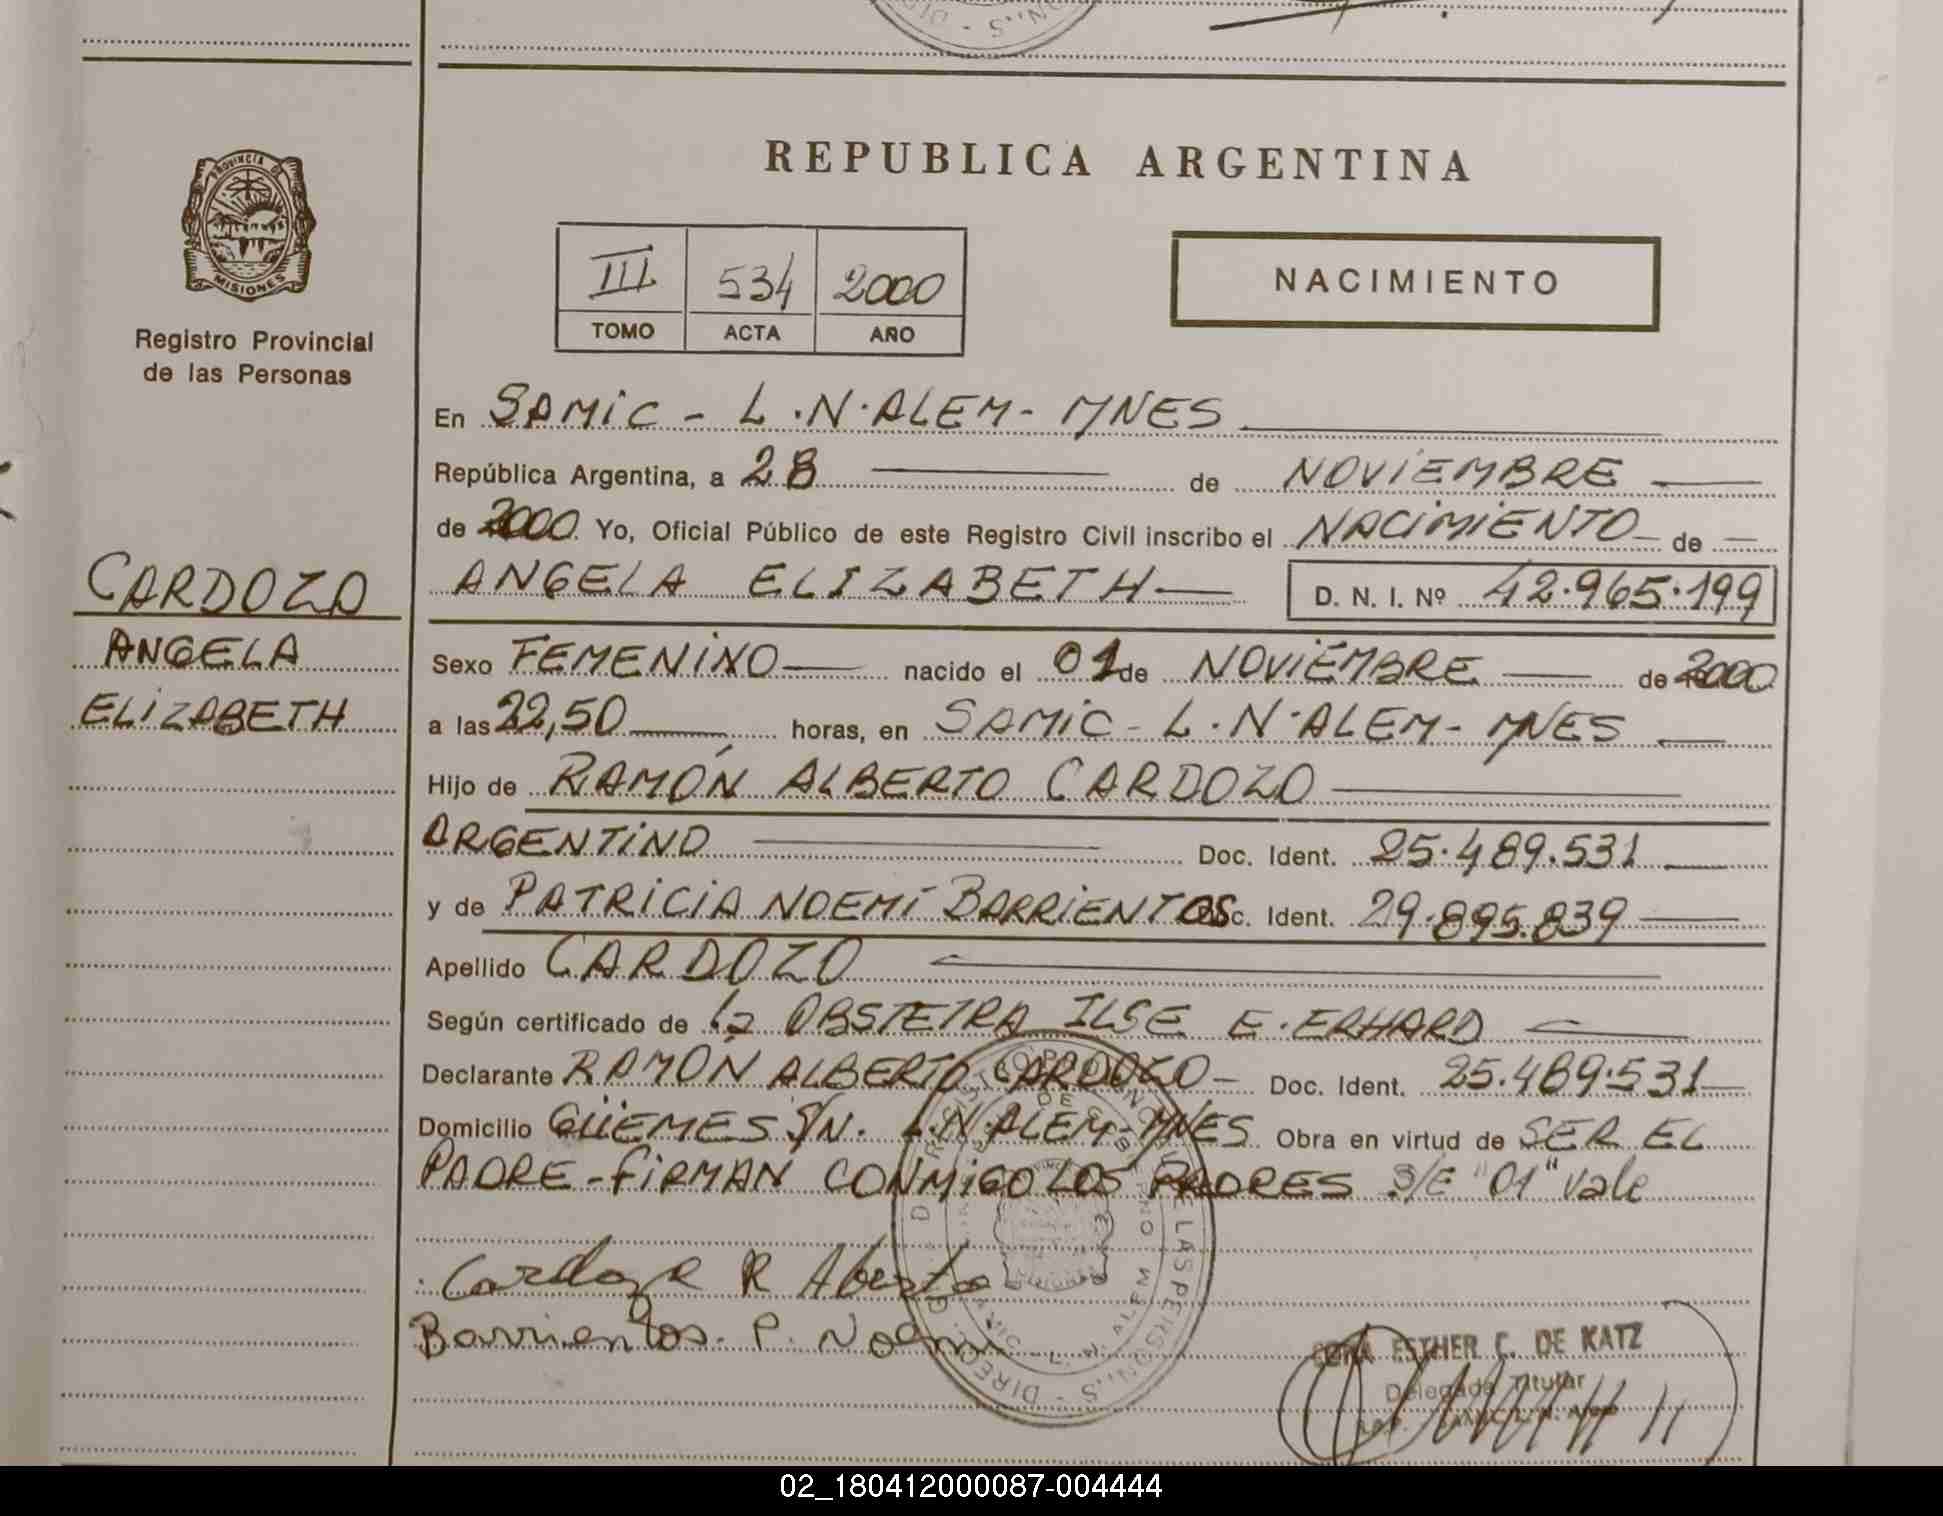 REPUBLICA ARGENTINA
PROVINCIA DE
MISIONES
Registro Provincial
de las Personas
III 534 2000
TOMO ACTA AÑO
NACIMIENTO
En SAMIC - L.N.ALEM - MNES
República Argentina, a 28 de NOVIEMBRE
de 2000. Yo, Oficial Público de este Registro Civil inscribo el NACIMIENTO de
ANGELA ELIZABETH D. N. I. Nº 42.965.199
CARDOZO
ANGELA
ELIZABETH
Sexo FEMENINO nacido el 01 de NOVIEMBRE de 2000
a las 22,50 horas, en SAMIC - L.N.ALEM - MNES
Hijo de RAMÓN ALBERTO CARDOZO
ARGENTINO Doc. Ident. 25.489.531
y de PATRICIA NOEMÍ BARRIENTOS Doc. Ident. 29.895.839
Apellido CARDOZO
Según certificado de la OBSTETRA ILSE E. ERHARD
Declarante RAMÓN ALBERTO CARDOZO - Doc. Ident. 25.489.531
Domicilio GÜEMES S/N. L.N.ALEM - MNES Obra en virtud de SER EL
PADRE - FIRMAN CONMIGO LOS PADRES S/E "01" vale
Cardozo R Alberto
Barrientos. P. Noemi
ESTHER C. DE KATZ
Delegada Titular
02_180412000087-004444